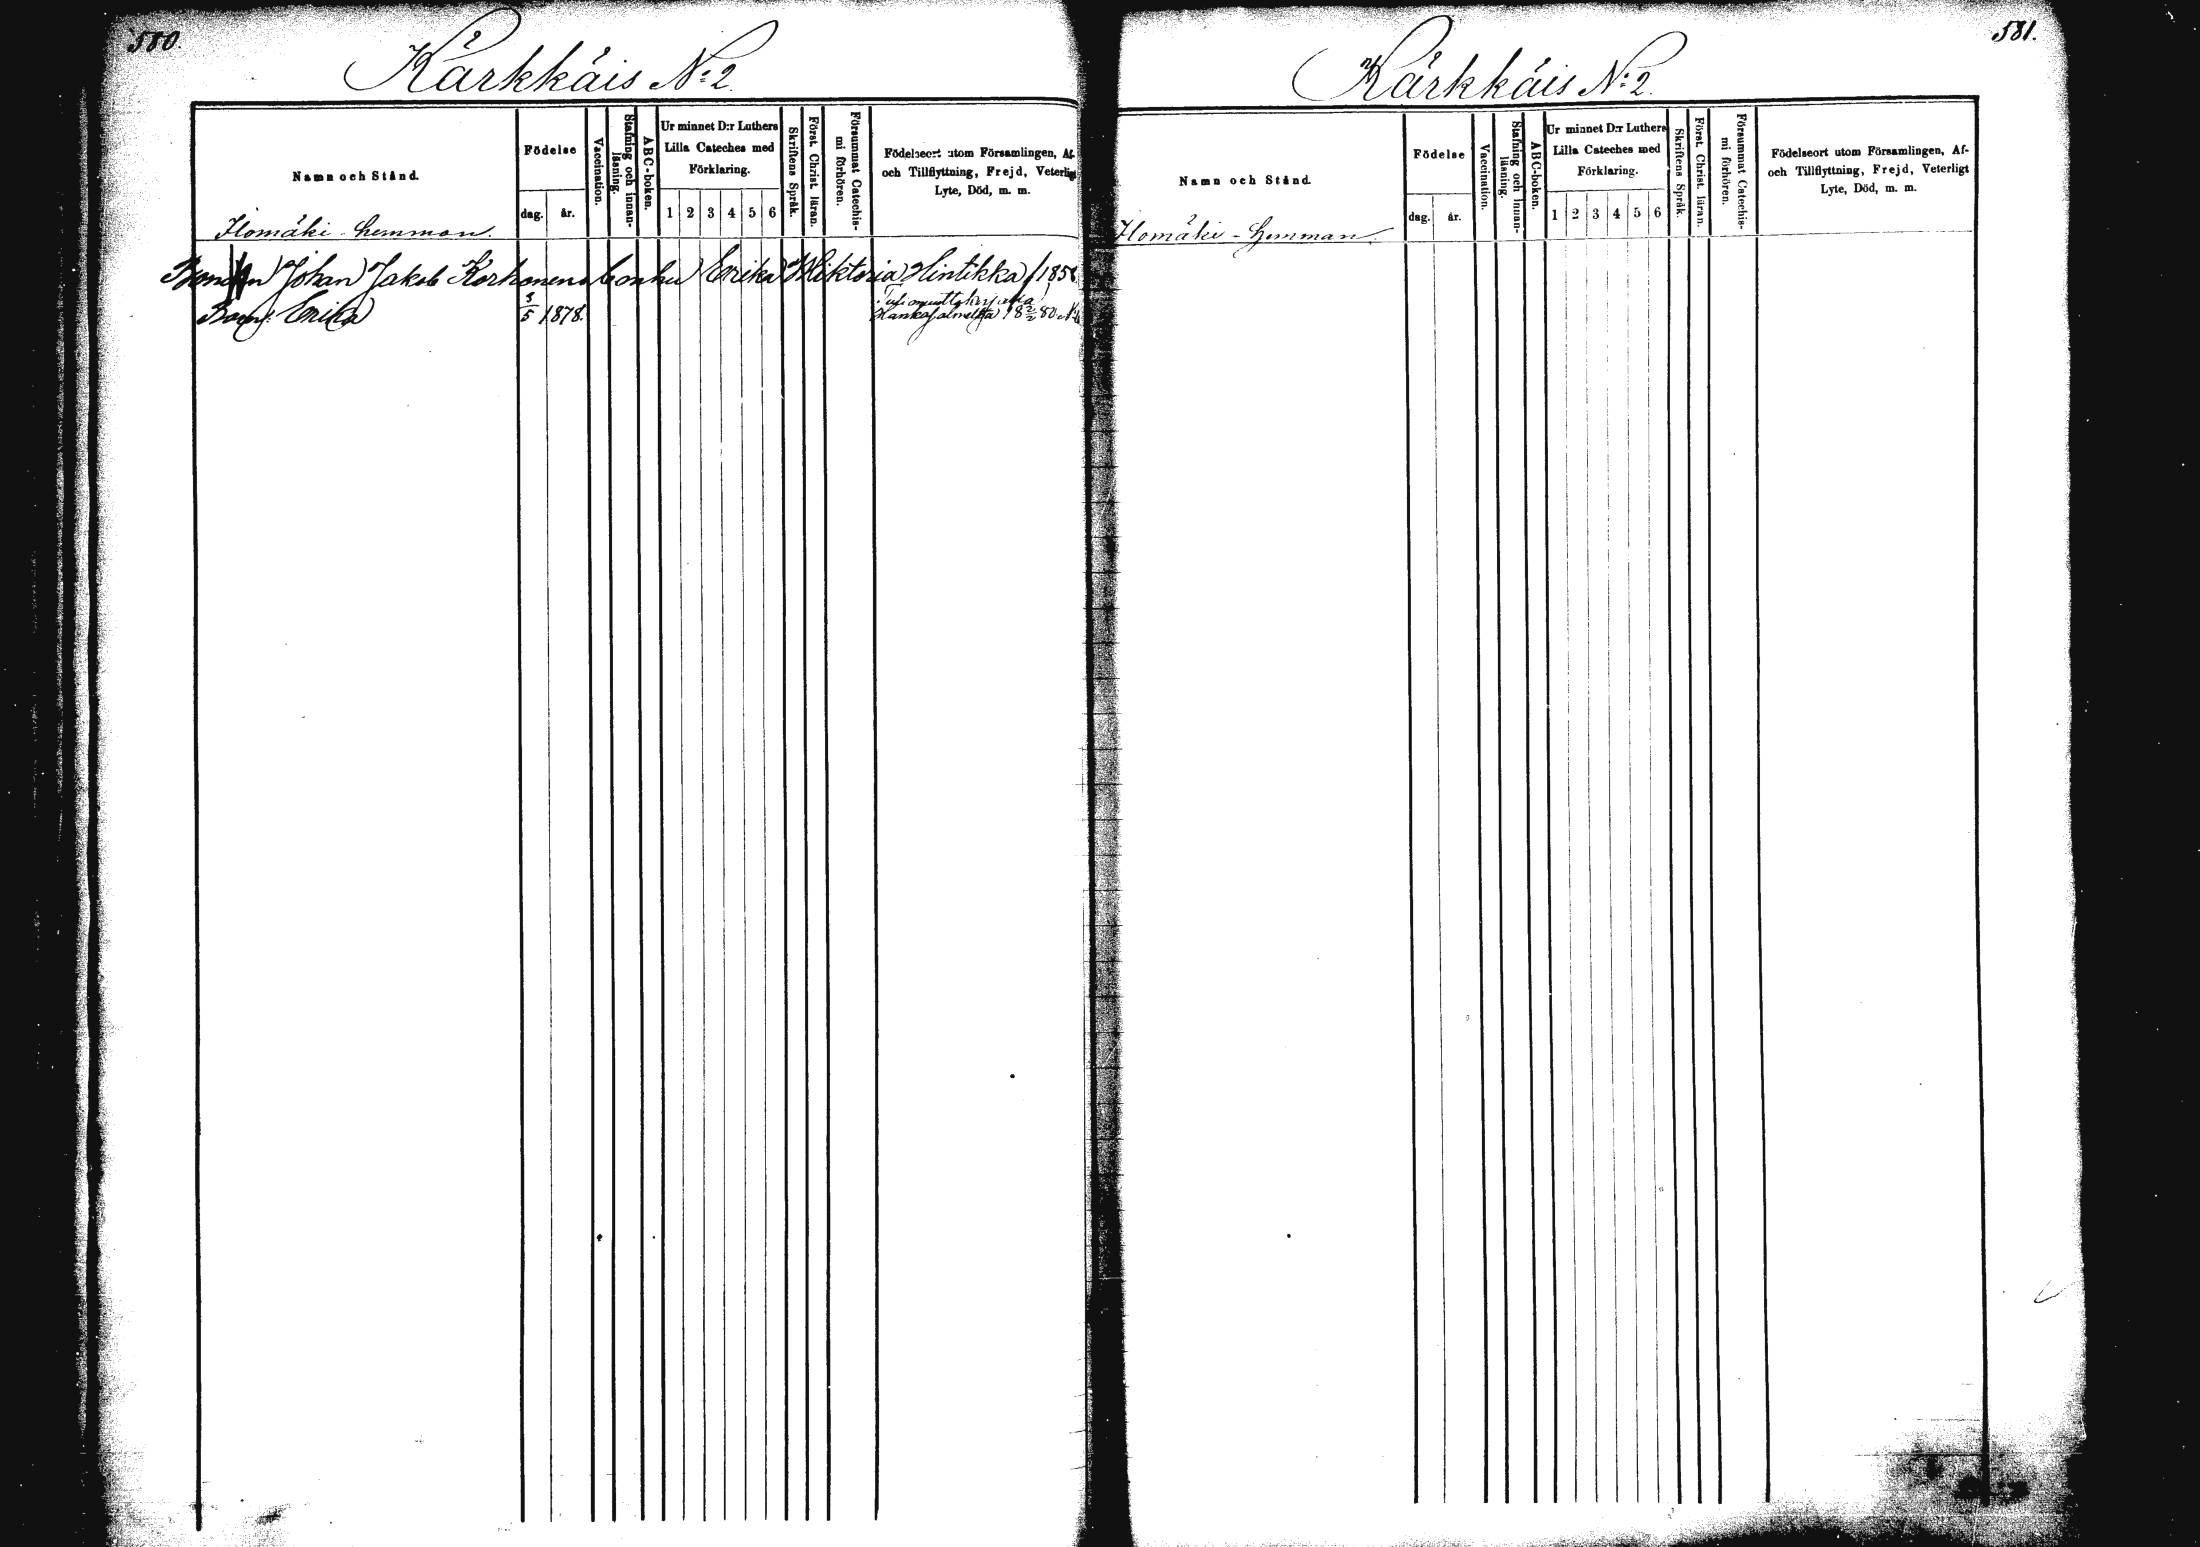 580.
Kärkkäis N:2.
Namn och Stånd.
Födelse
dag. år.
Vaccination.
Stafning och innan-
läsning.
ABC-boken.
Ur minnet D:r Luthers
Lilla Cateches med
Förklaring.
1 2 3 4 5 6
Skriftens Språk.
Först. Christ. läran.
Försummat Catechis-
mi förhören.
Födelseort utom Församlingen, Af-
och Tillflyttning, Frejd, Veterligt
Lyte, Död, m. m.
Ilomäki - hemman.
Johan Jakob Korhonens Enka Erika Wiktoria Hintikka 1858
Barn: Erika
3/5 1878.
Hankasalmelta 18 2/2 80
581.
Kärkkäis N:2.
Namn och Stånd.
Födelse
dag. år.
Vaccination.
Stafning och innan-
läsning.
ABC-boken.
Ur minnet D:r Luthers
Lilla Cateches med
Förklaring.
1 2 3 4 5 6
Skriftens Språk.
Först. Christ. läran.
Försummat Catechis-
mi förhören.
Födelseort utom Församlingen, Af-
och Tillflyttning, Frejd, Veterligt
Lyte, Död, m. m.
Ilomäki - hemman.